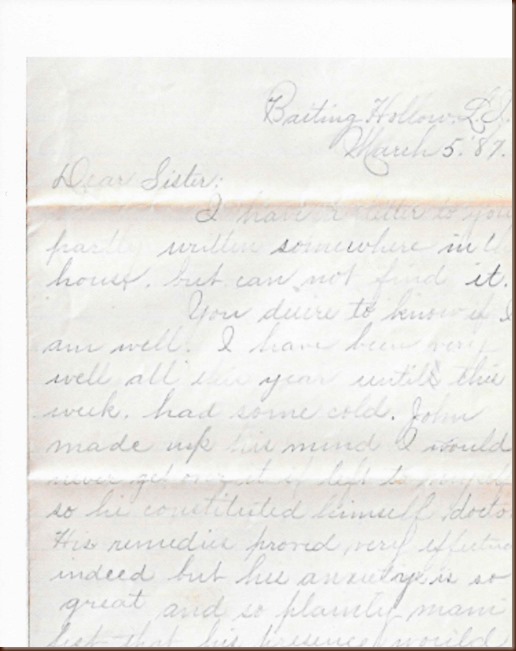 Baiting Hollow. L.I.
March 5. '87.
Dear Sister:
I have a letter to you
partly written somewhere in th
house. but can not find it.
You desire to know if I
am well. I have been very
well all this year until this
week. had some cold. John
made up his mind I would
never get over it if left to myself
so he constituted himself docto
His remedies proved very effective
indeed but his anxiety is so
great and so plainly mani
fest that his presence would